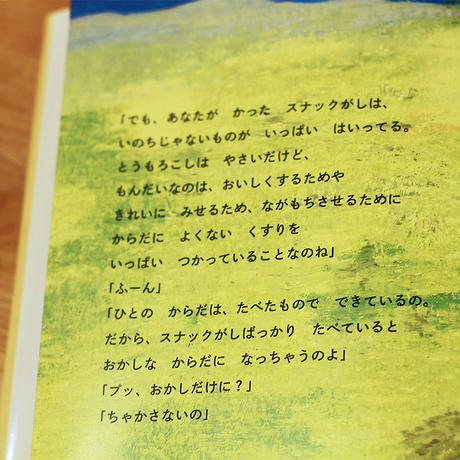 「でも、あなたが　かった　スナックがしは、
いのちじゃないものが　いっぱい　はいってる。
とうもろこしは　やさいだけど、
もんだいなのは、おいしくするためや
きれいに　みせるため、ながもちさせるために
からだに　よくない　くすりを
いっぱい　つかっていることなのね」
「ふーん」
「ひとの　からだは、たべたもので　できているの。
だから、スナックがしばっかり　たべていると
おかしな　からだに　なっちゃうのよ」
「プッ、おかしだけに？」
「ちゃかさないの」